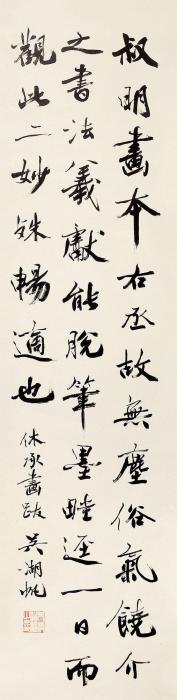 叔明畫本右丞故無塵俗氣饒介
之書法羲獻能脫筆墨畦逕一日而
觀此二妙殊暢適也
休承畫跋 吴湖帆